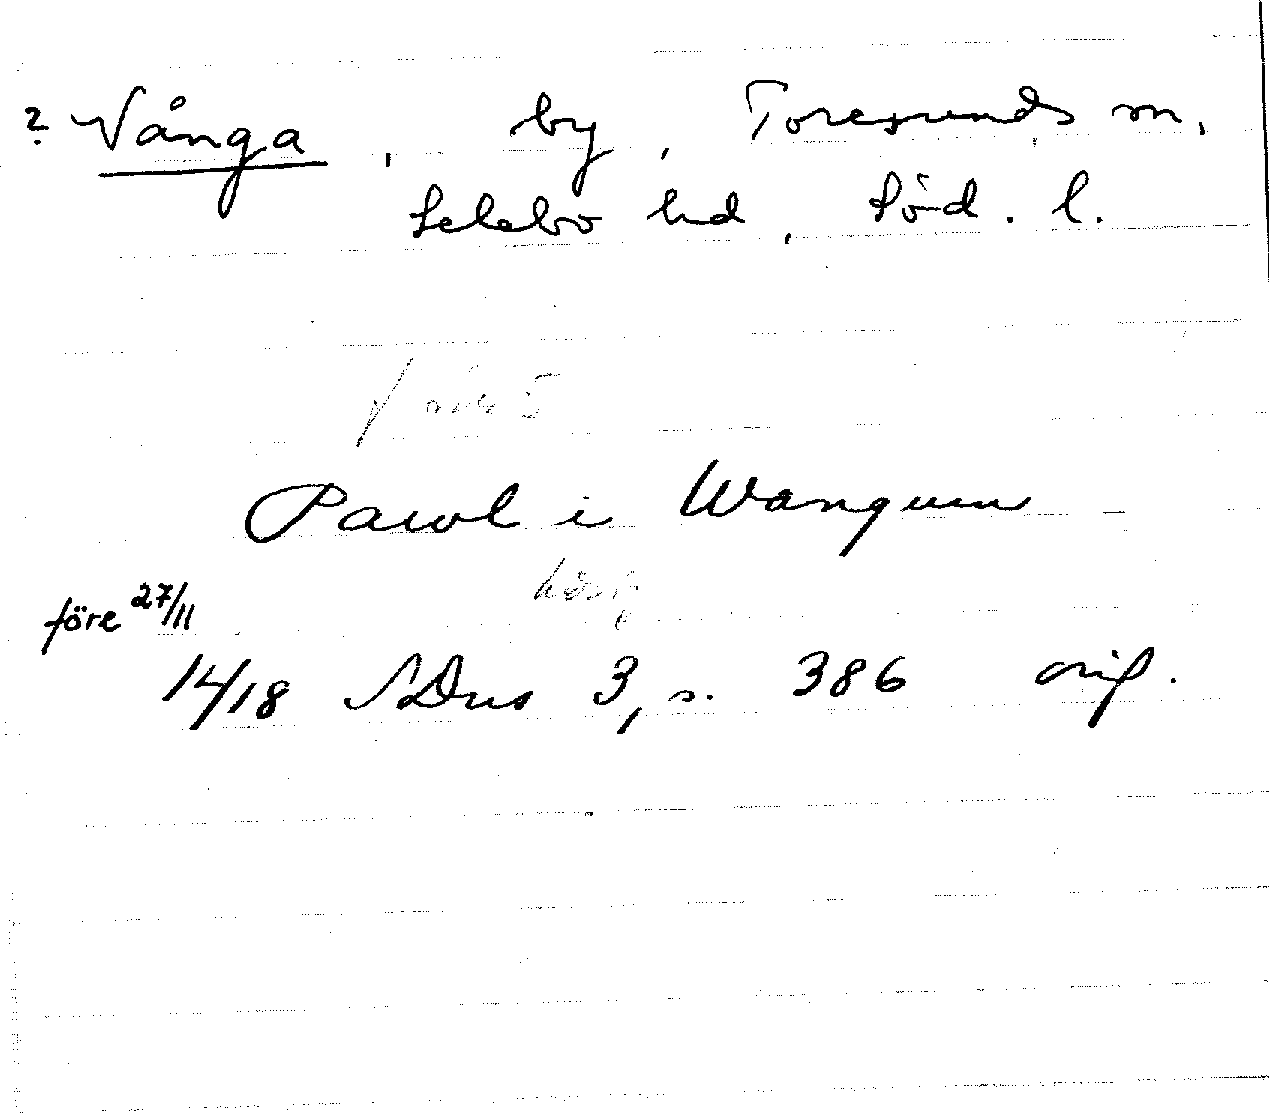 ? Vånga, by, Toresunds sn,
Selebo hd, Söd. l.
Pawl i Wangum
före 27/11
1418 SDns 3, s. 386 orig.